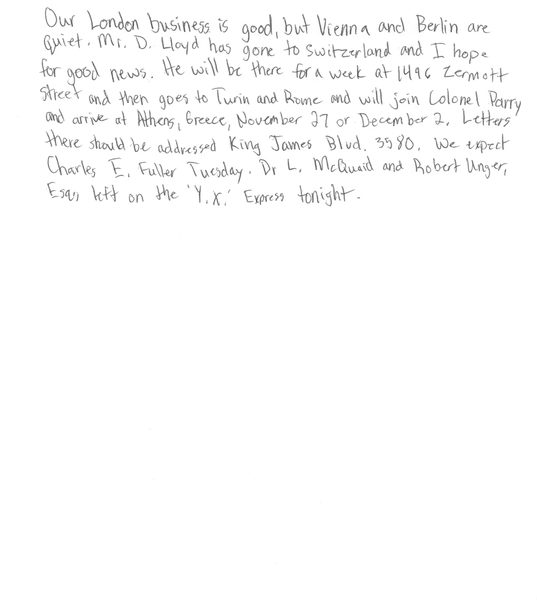 Our London business is good, but Vienna and Berlin are
quiet. Mr. D. Lloyd has gone to Switzerland and I hope
for good news. He will be there for a week at 1496 Zermott
Street and then goes to Turin and Rome and will join Colonel Parry
and arrive at Athens, Greece, November 27 or December 2. Letters
there should be addressed King James Blvd. 3580. We expect
Charles E. Fuller Tuesday. Dr L. McQuaid and Robert Unger,
Esq., left on the 'Y.X.' Express tonight.